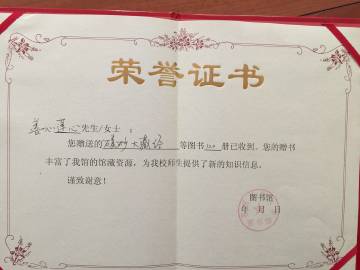 荣誉证书
善心莲心先生/女士：
您赠送的碛砂大藏经等图书 册已收到，您的赠书
丰富了我馆的馆藏资源，为我校师生提供了新的知识信息。
谨致谢意！
图书馆
年 月 日